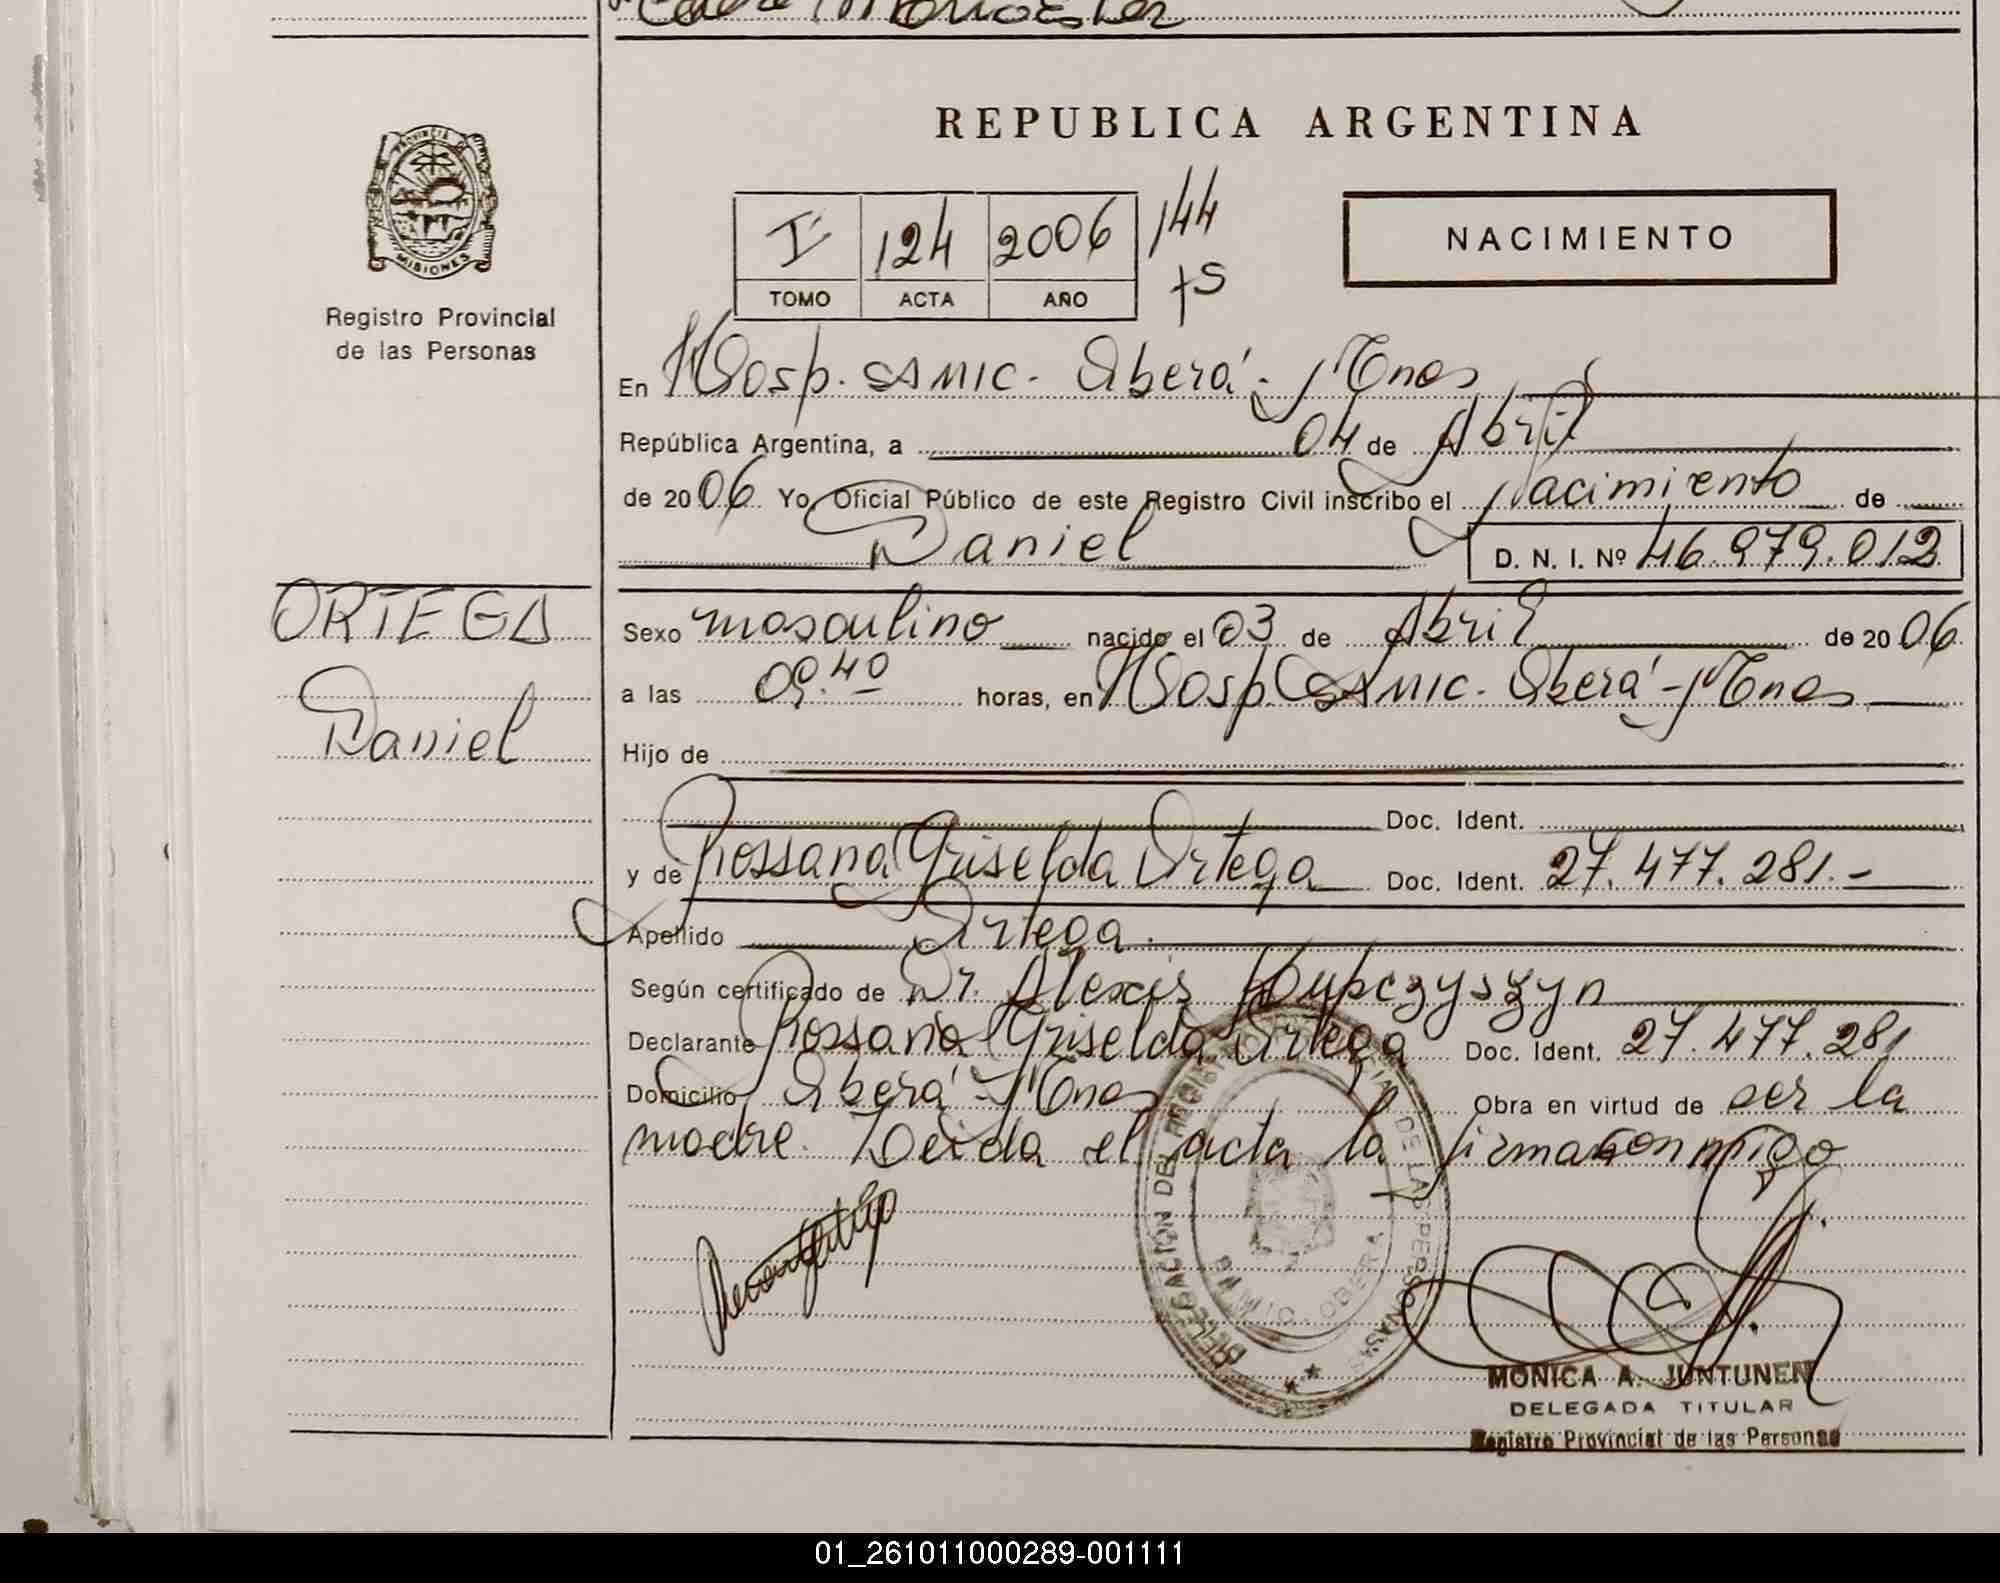 REPUBLICA ARGENTINA
PROVINCIA DE
MISIONES
Registro Provincial
de las Personas
Iº 124 2006 144
TOMO ACTA AÑO
NACIMIENTO
En Hosp. SAMIC. Oberá - Mnes
República Argentina, a 04 de Abril
de 2006. Yo, Oficial Público de este Registro Civil inscribo el Nacimiento de
Daniel D. N. I. Nº 46.979.012
ORTEGA
Daniel
Sexo masculino nacido el 03 de Abril de 2006.
a las 09.40 horas, en Hosp. SAMIC. Oberá - Mnes
Hijo de
Doc. Ident.
y de Rossana Griselda Ortega Doc. Ident. 27.477.281.-
Apellido Ortega.
Según certificado de Dr. Alexis Kupczyszyn
Declarante Rossana Griselda Ortega Doc. Ident. 27.477.281
Domicilio Oberá - Mnes Obra en virtud de ser la
madre. Leída el acta la firma conmigo
DELEGACIÓN DEL REGISTRO PROVINCIAL DE LAS PERSONAS
OBERA
MONICA A. JUNTUNEN
DELEGADA TITULAR
Registro Provincial de las Personas
01_261011000289-001111